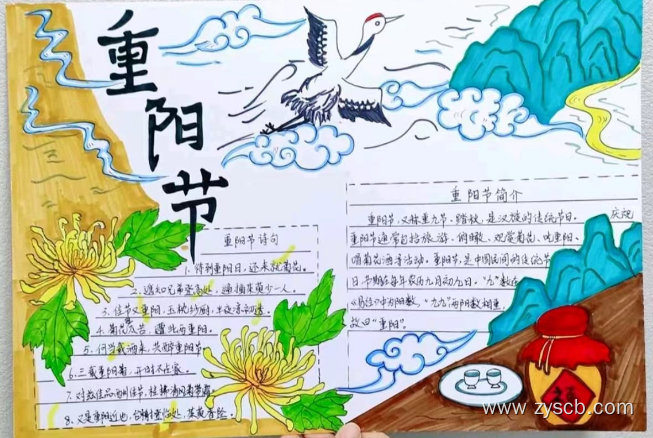 重阳节
重阳节诗句
1. 待到重阳日，还来就菊花。
2. 遥知兄弟登高处，遍插茱萸少一人。
3. 佳节又重阳，玉枕纱厨，半夜凉初透。
4. 菊花
5. 何当载酒来，共醉重阳节
6. 三载重阳菊，开时不在家。
7.
8. 又是重阳近也，
重阳节简介
重阳节，又称重九节、踏秋，是汉族的传统节日。
庆祝
重阳节通常包括旅游、观赏菊花、
菊花酒等活动。重阳节，是中国民间的传统节
日，节期在每年农历九月初九日。"九"数在
《易经》中为阳数，"九九"两阳数相重，
故曰"重阳"。
www.zyscb.com